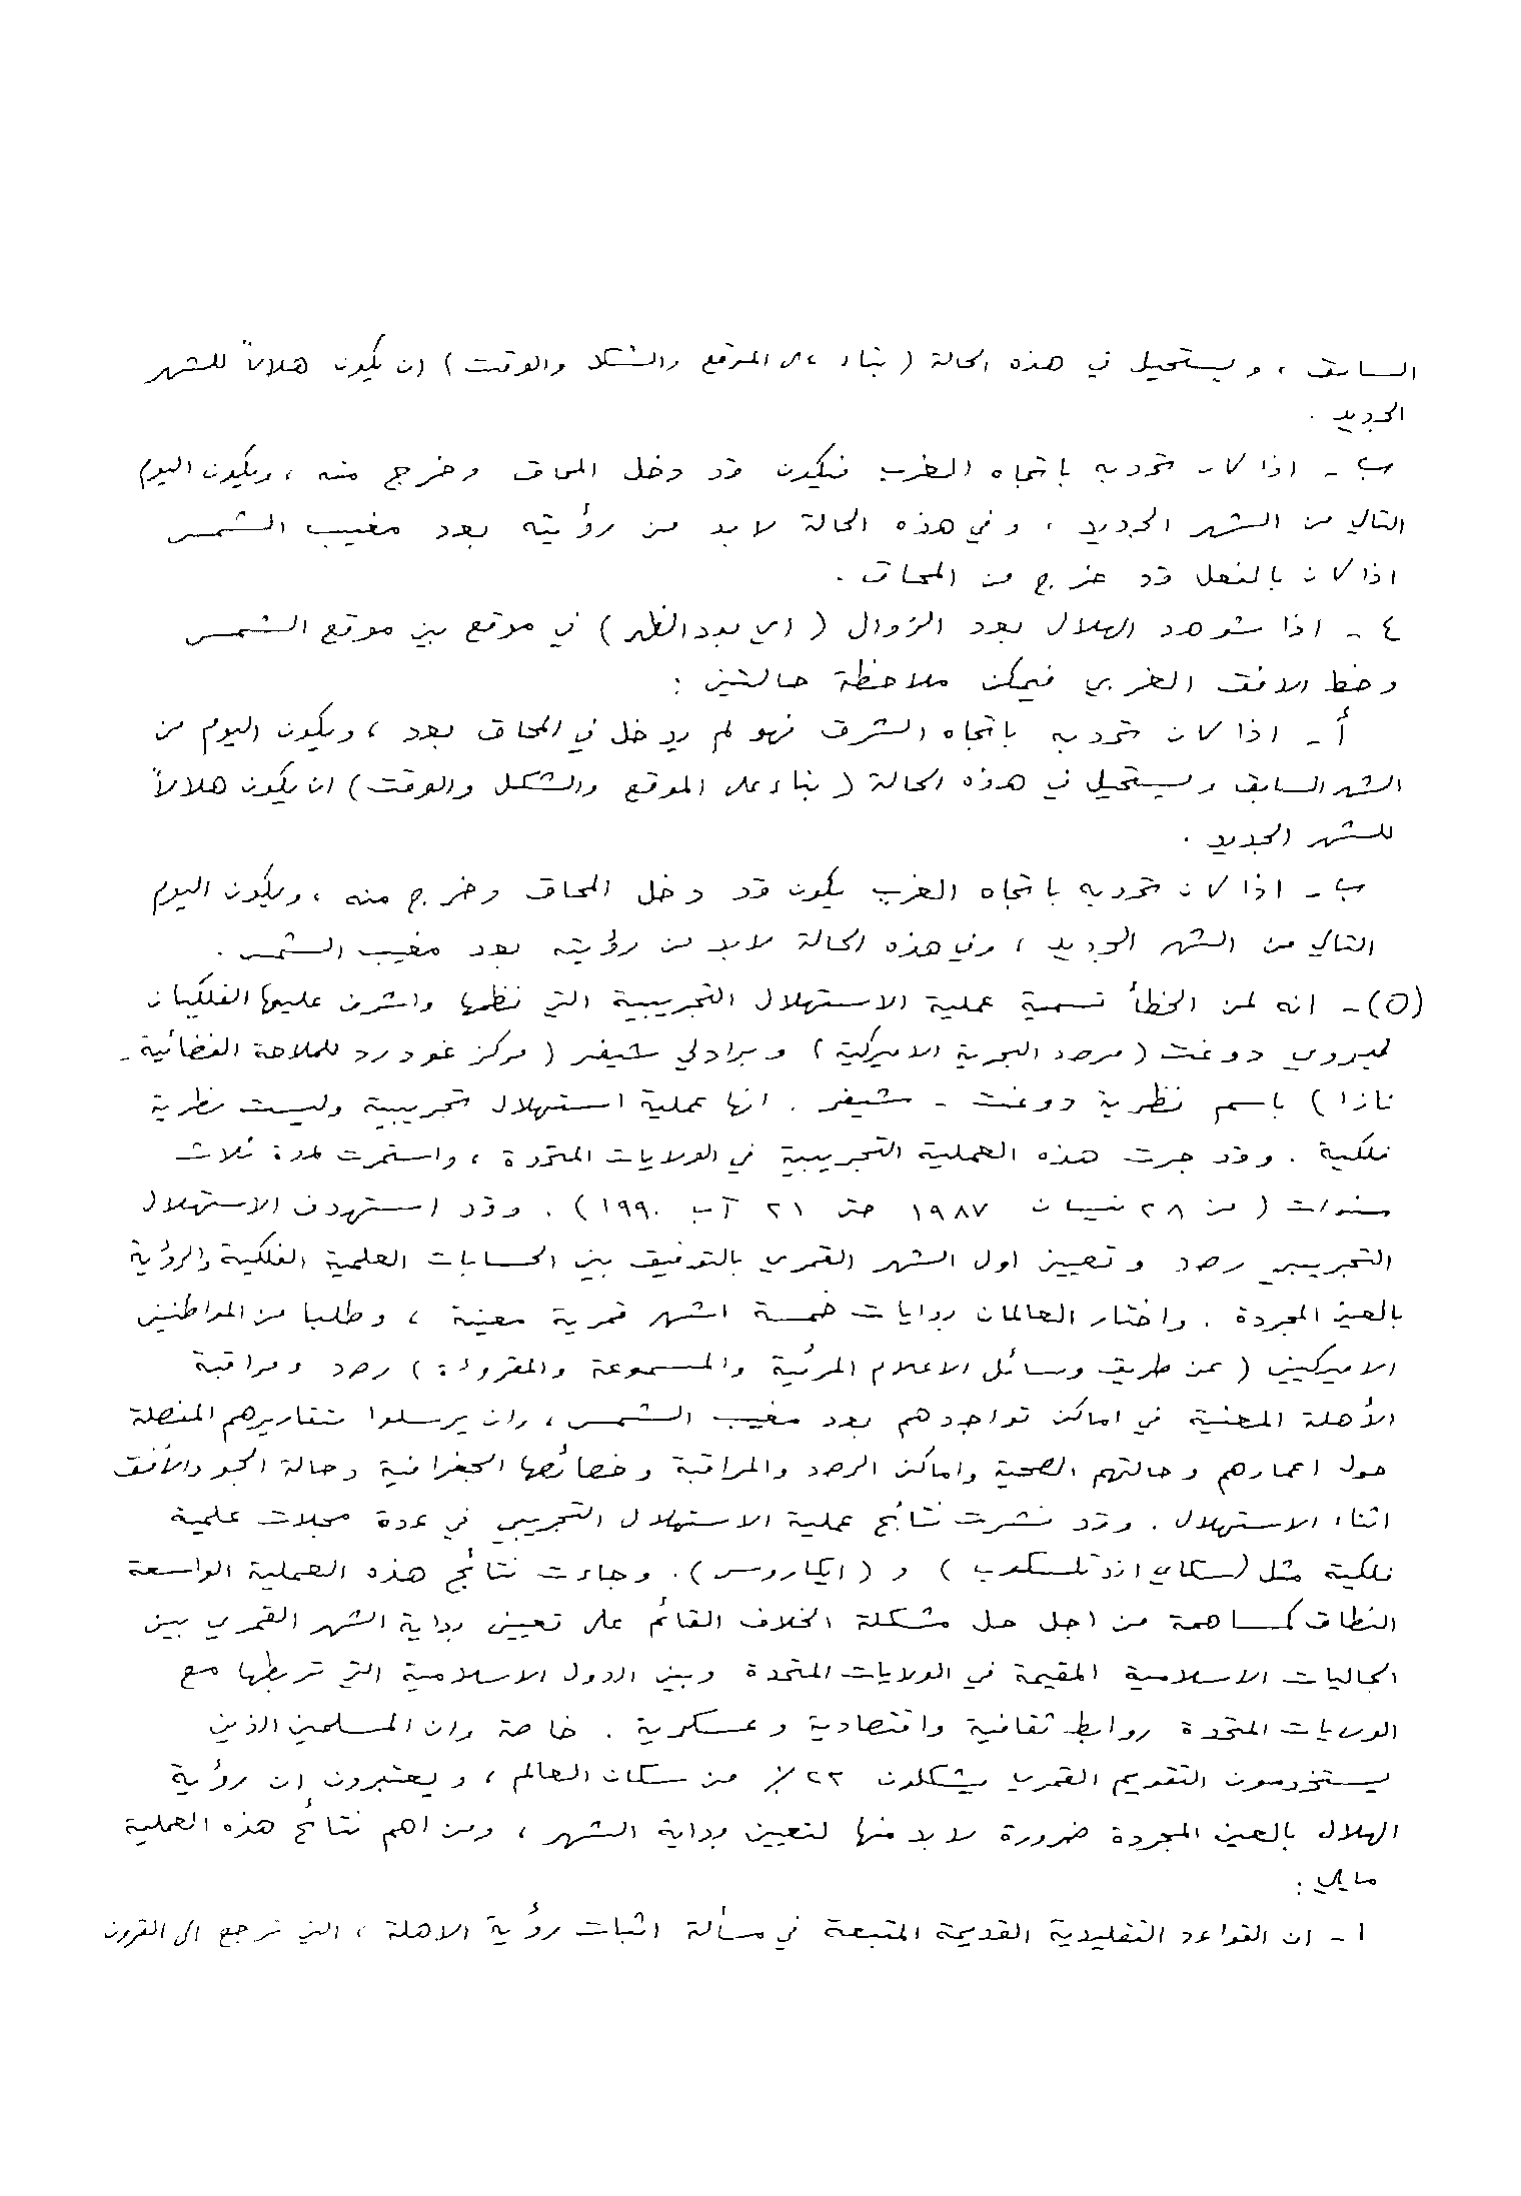 السابق ، ويستحيل في هذه الحالة ( بناء على الموقع والشكل والوقت ) ان يكون هلالاً للشهر
الجديد .
ب - اذا كان تحدبه باتجاه الغرب فيكون قد دخل المحاق وخرج منه ، ويكون اليوم
التالي من الشهر الجديد ، وفي هذه الحالة لا بد من رؤيته بعد مغيب الشمس
اذا كان بالفعل قد خرج من المحاق .
٤ - اذا شوهد الهلال بعد الزوال ( اي بعد الظهر ) في موقع بين موقع الشمس
وخط الافق الغربي فيمكن ملاحظة حالتين :
أ - اذا كان تحدبه باتجاه الشرق فهو لم يدخل في المحاق بعد ، ويكون اليوم من
الشهر السابق ويستحيل في هذه الحالة ( بناء على الموقع والشكل والوقت ) ان يكون هلالاً
للشهر الجديد .
ب - اذا كان تحدبه باتجاه الغرب يكون قد دخل المحاق وخرج منه ، ويكون اليوم
التالي من الشهر الجديد ، وفي هذه الحالة لا بد من رؤيته بعد مغيب الشمس .
(٥) - انه لمن الخطأ تسمية عملية الاستهلال التجريبية التي نظمها واشرف عليها الفلكيان
ليروي دوغت ( مرصد البحرية الاميركية ) وبرادلي شيفر ( مركز غودرد للملاحة الفضائية -
نازا ) باسم نظرية دوغت - شيفر . انها عملية استهلال تجريبية وليست نظرية
فلكية . وقد جرت هذه العملية التجريبية في الولايات المتحدة ، واستمرت لمدة ثلاث
سنوات ( من ٢٨ نيسان ١٩٨٧ حتى ٢١ آب ١٩٩٠ ) . وقد استهدف الاستهلال
التجريبي رصد وتعيين اول الشهر القمري بالتوفيق بين الحسابات العلمية الفلكية والرؤية
بالعين المجردة . واختار العالمان بدايات خمسة اشهر قمرية معينة ، وطلبا من المواطنين
الاميركيين ( عن طريق وسائل الاعلام المرئية والمسموعة والمقروءة ) رصد ومراقبة
الأهلة المعنية في اماكن تواجدهم بعد مغيب الشمس ، وان يرسلوا تقاريرهم المفصلة
حول اعمارهم وحالتهم الصحية واماكن الرصد والمراقبة وخصائصها الجغرافية وحالة الجو والأفق
اثناء الاستهلال . وقد نشرت نتائج عملية الاستهلال التجريبي في عدة مجلات علمية
فلكية مثل ( سكاي اند تلسكوب ) و ( ايكاروس ) . وجاءت نتائج هذه العملية الواسعة
النطاق كمساهمة من اجل حل مشكلة الخلاف القائم على تعيين بداية الشهر القمري بين
الجاليات الاسلامية المقيمة في الولايات المتحدة وبين الدول الاسلامية التي تربطها مع
الولايات المتحدة روابط ثقافية واقتصادية وعسكرية . خاصة وان المسلمين الذين
يستخدمون التقويم القمري يشكلون ٢٢ ٪ من سكان العالم ، ويعتبرون ان رؤية
الهلال بالعين المجردة ضرورة لا بد منها لتعيين بداية الشهر ، ومن اهم نتائج هذه العملية
مايلي :
١ - ان القواعد التقليدية القديمة المتبعة في مسألة اثبات رؤية الاهلة ، التي ترجع الى القرون